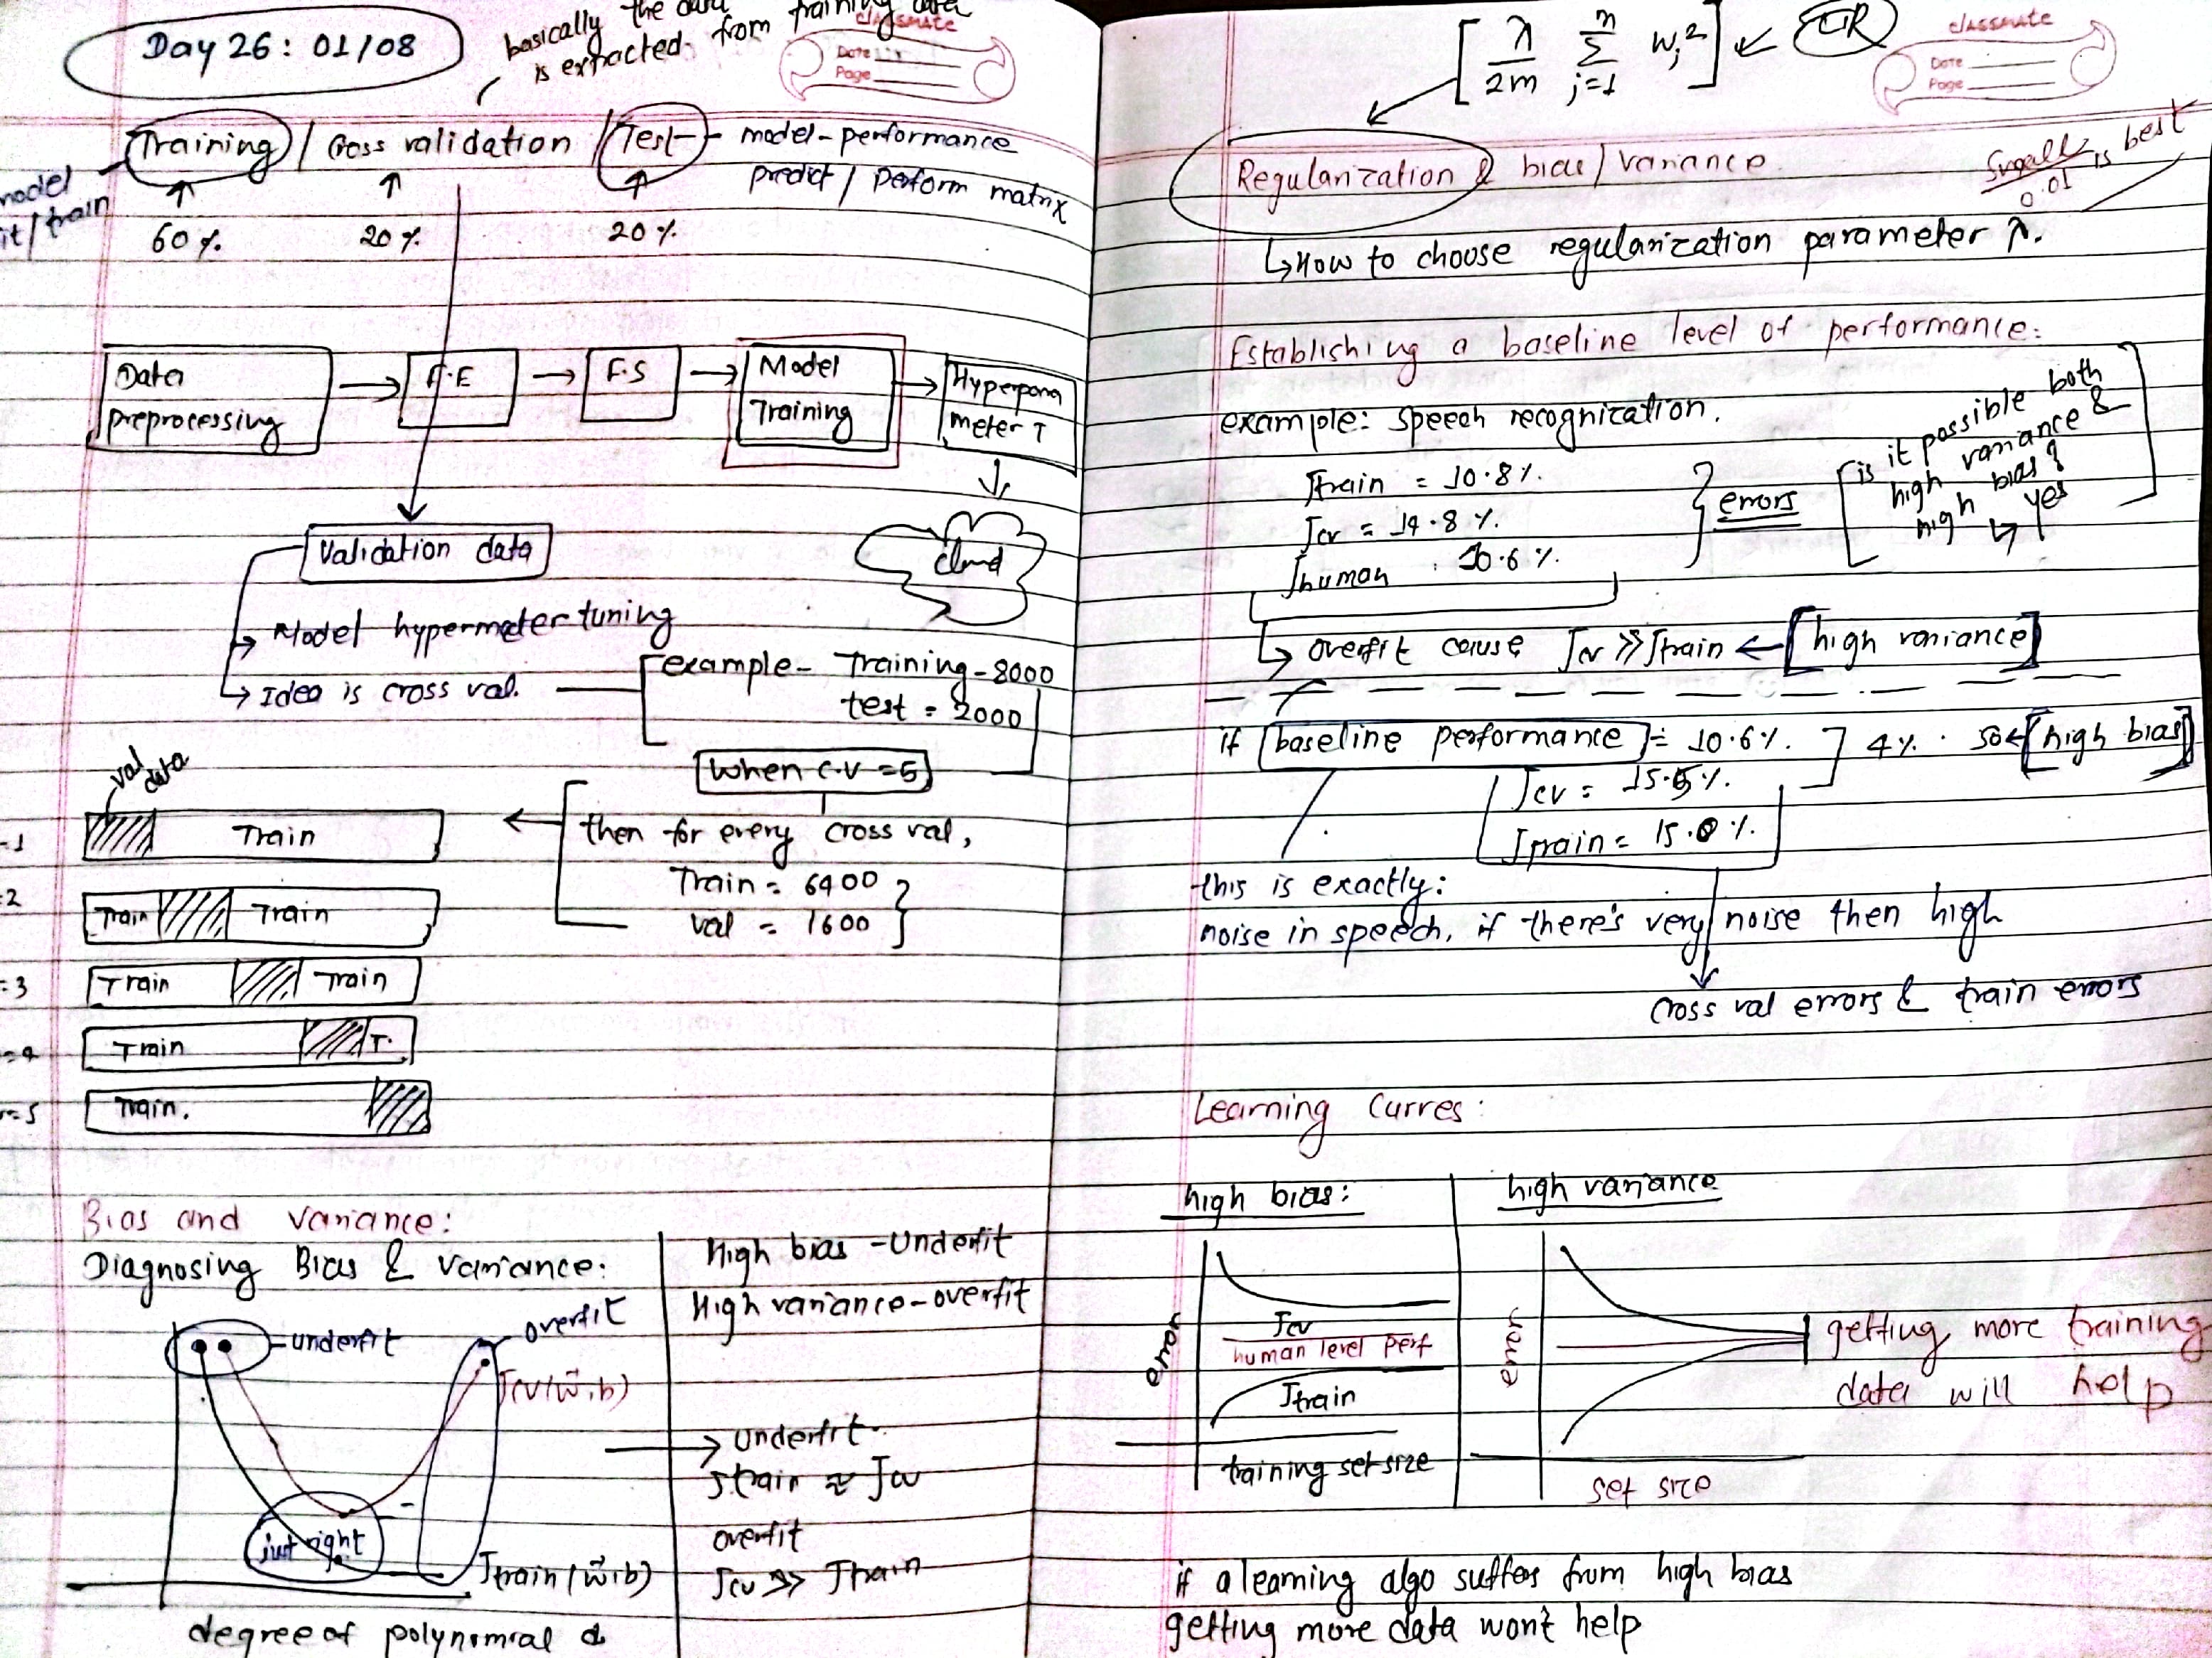 Day 26: 01/08
basically the data
is extracted from training data
classmate
Date
Page
Training / Cross validation / Test - model-performance
predict / perform matrix
model
it/train
60 %. 20 %. 20 %.
Data
preprocessing
F.E
F.S
Model
Training
Hyperpara
meter T
cloud
Validation data
Model hypermeter tuning
Idea is cross val.
example - Training - 8000
test = 2000
When C.V = 5
then for every cross val,
Train = 6400
val = 1600
val
data
-1 Train
=2 Train Train
=3 Train Train
=4 Train T.
=5 Train.
Bias and variance:
Diagnosing Bias & variance:
underfit
overfit
Jcv(w⃗,b)
just right
Jtrain(w⃗,b)
degree of polynomial d
High bias - Underfit
High variance - overfit
underfit
Jtrain ≈ Jcv
overfit
Jcv >> Jtrain
[λ/2m Σ j=1 n wj²] ← LR
classmate
Date
Page
Regularization & bias/variance
Small is best
0.01
↳ How to choose regularization parameter λ.
Establishing a baseline level of performance:
example: speech recognization.
Jtrain = 10.8%.
Jcv = 14.8%.
Jhuman . 10.6%.
errors
is it possible both
high variance &
high bias?
↳ yes
↳ overfit cause Jcv >> Jtrain ← [high variance]
if baseline performance = 10.6%. ] 4%. so ← [high bias]
Jcv = 15.5%.
Jtrain = 15.0%.
this is exactly:
noise in speech, if there's very noise then high
cross val errors & train errors
Learning Curves:
high bias:
error
Jcv
human level perf
Jtrain
training set size
high variance
error
set size
getting more training
data will help
if a learning algo suffers from high bias
getting more data won't help